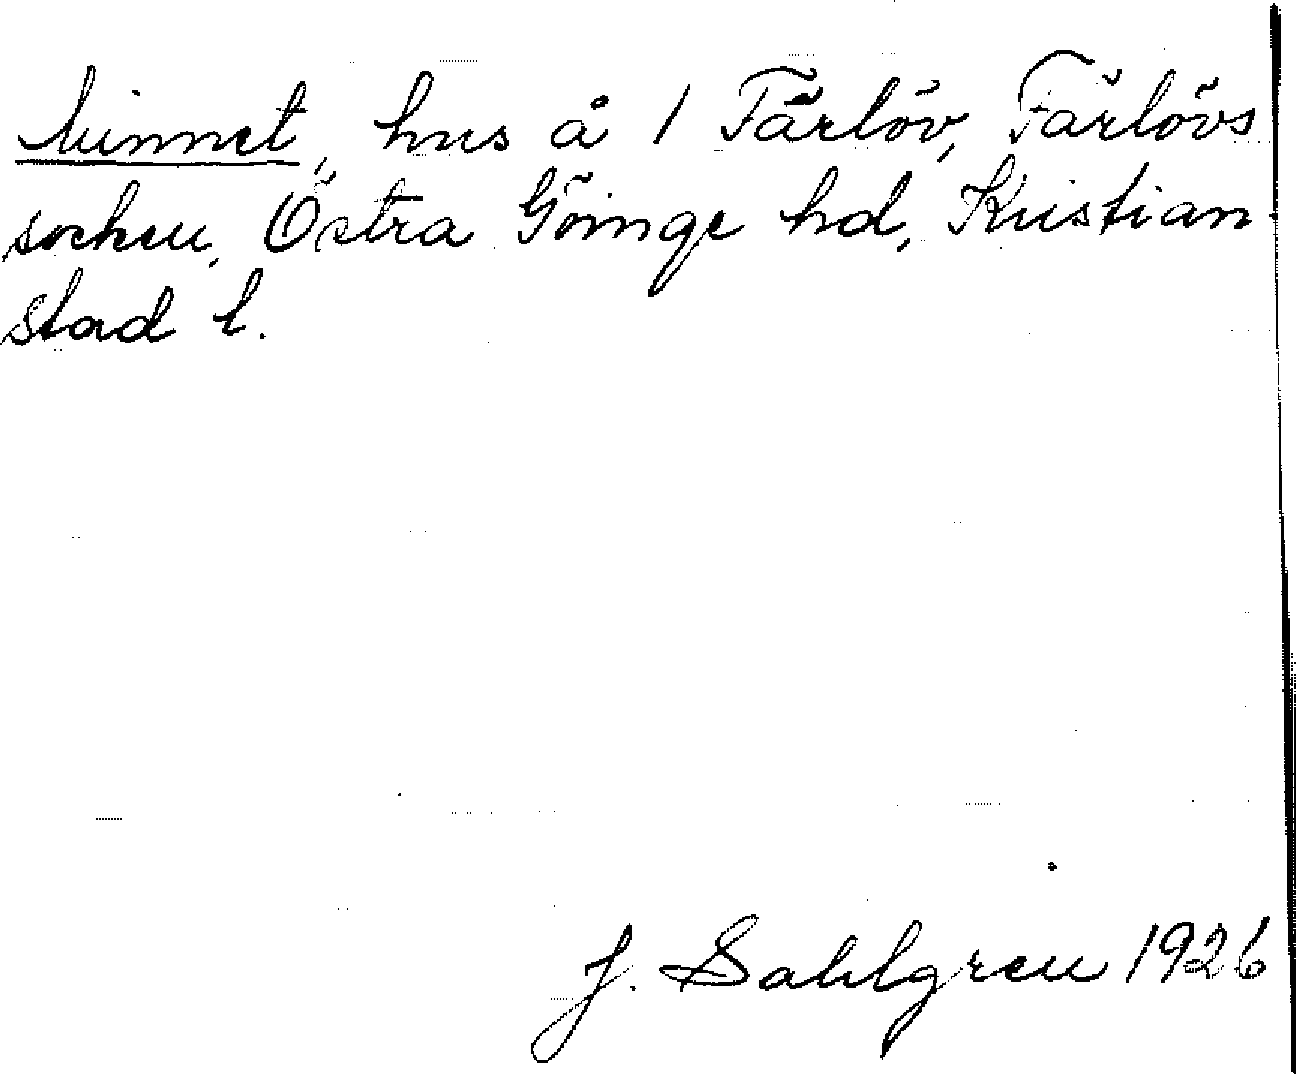 Minnet, hus å 1 Färlöv, Färlövs
socken, Östra Göinge hd, Kristian-
stad l.
J. Sahlgren 1926